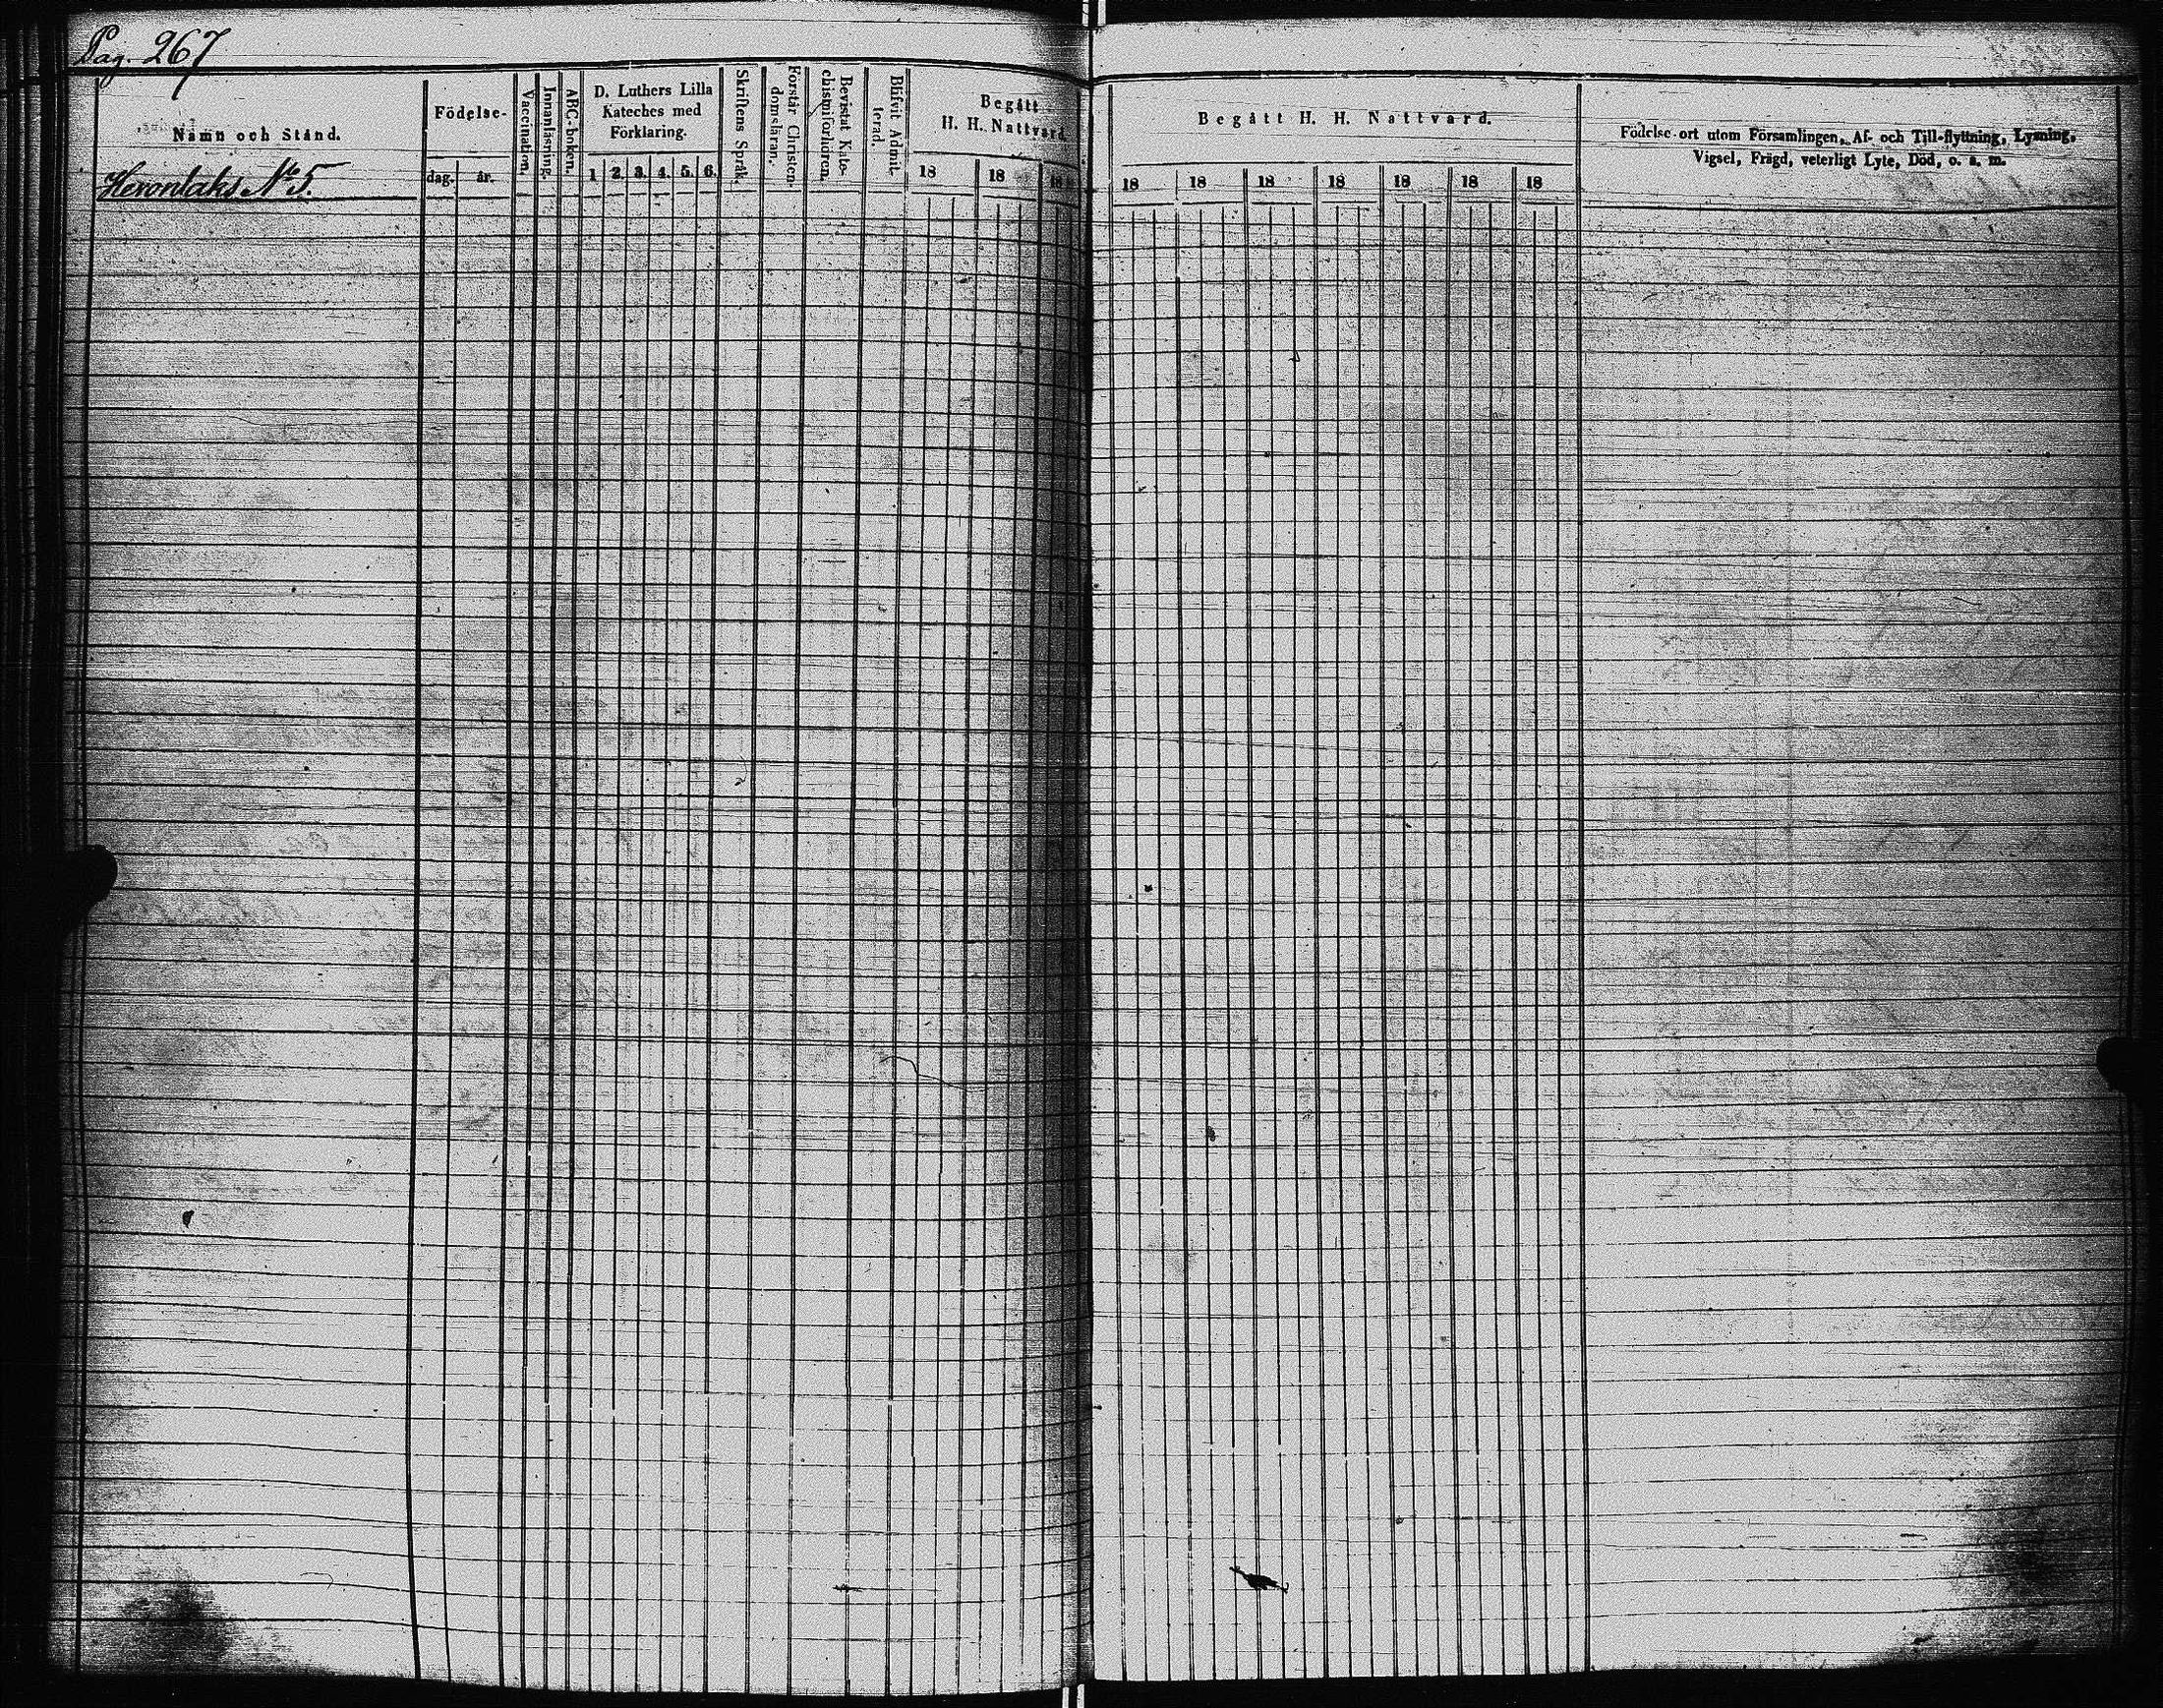 Pag. 267
Namn och Stånd.
Heronlaks No 5.
Födelse-
dag.
år.
Vaccination.
Innanläsning.
ABC-boken.
D. Luthers Lilla
Kateches med
Förklaring.
1 2. 3. 4. 5. 6.
Skriftens Språk.
Förstår Christen-
domsläran.
Bevistat Kate-
chismiförhören.
Blifvit Admit-
terad.
Begått
H. H. Nattvard.
18 18 18
Begått H. H. Nattvard.
18 18 18 18 18 18 18
Födelse-ort utom Församlingen, Af- och Till-flyttning, Lysning,
Vigsel, Frägd, veterligt Lyte, Död, o. s. m.